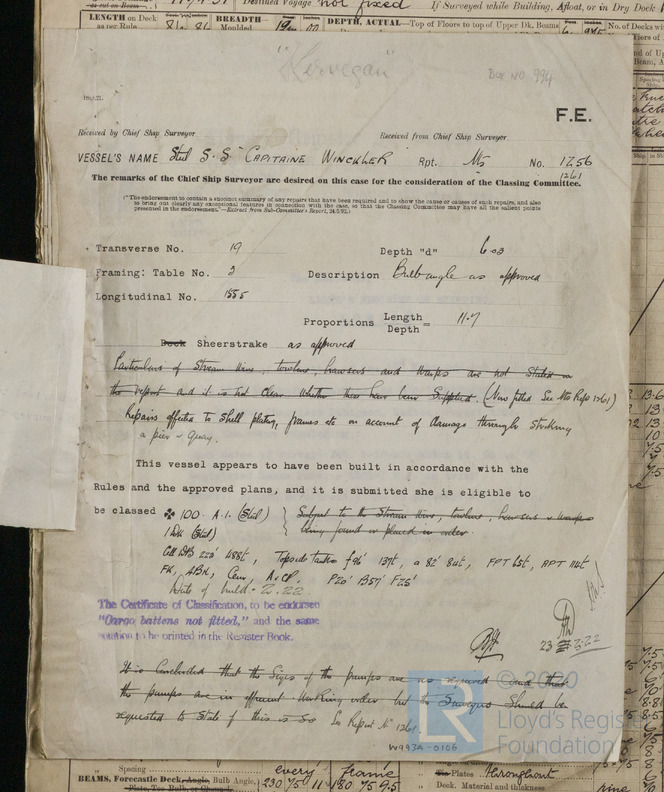 Destined Voyage not fixed If Surveyed while Building, Afloat, or in Dry Dock
LENGTH on Deck as per Rule BREADTH Moulded DEPTH, ACTUAL—Top of Floors to top of Upper Dk. Beams No. of Decks
"Kervegan"
Box No 994
F.E.
Received by Chief Ship Surveyor Received from Chief Ship Surveyor
VESSEL'S NAME Steel S.S "CAPITAINE WINCKLER" Rpt. Nts No. 1256
1261
The remarks of the Chief Ship Surveyor are desired on this case for the consideration of the Classing Committee.
("The endorsement to contain a succinct summary of any repairs that have been required and to show the cause or causes of such repairs, and also
to bring out clearly any exceptional features in connection with the case, so that the Classing Committee may have all the salient points
presented in the endorsement."—Extract from Sub-Committee's Report, 24/5/92.)
Transverse No. 19 Depth "d" 6.03
Framing: Table No. 3 Description Bulb angle as approved
Longitudinal No. 1885
Proportions Length / Depth = 11.7
Deck Sheerstrake as approved
Particulars of Stream wire, towline, hawsers and warps are not stated in
the report and it is not clear whether these have been supplied. (Now fitted See Nts Rept 1261)
Repairs effected to shell plating, frames etc on account of damage through striking
a pier & quay.
This vessel appears to have been built in accordance with the
Rules and the approved plans, and it is submitted she is eligible to
be classed ✠ 100 A.1. (Steel) Subject to the Stream wire, towline, hawsers & warps
1 Dk (Steel) being found or placed in order.
Cell DB 223' 488t, Topside tanks f 96' 137t, a 82' 84t, FPT 65t, APT 114t
FK, 4BH, Cem, A&CP. P20' B57' F25'
Date of build - 2.22
The Certificate of Classification, to be endorsed
"Cargo battens not fitted," and the same
notation to be printed in the Register Book.
23 3.22
It is concluded that the sizes of the pumps are as required and that
the pumps are in efficient working order but the Surveyors should be
requested to state if this is so See Report No 1261
© 2020
Lloyd's Register
Foundation
W993A-0106
Spacing every frame
BEAMS, Forecastle Deck, Angle, Bulb Angle, 230 75 11 180 75 9.5 Plates throughout
Plate, Tee Bulb, or Channel Deck. Material and thickness